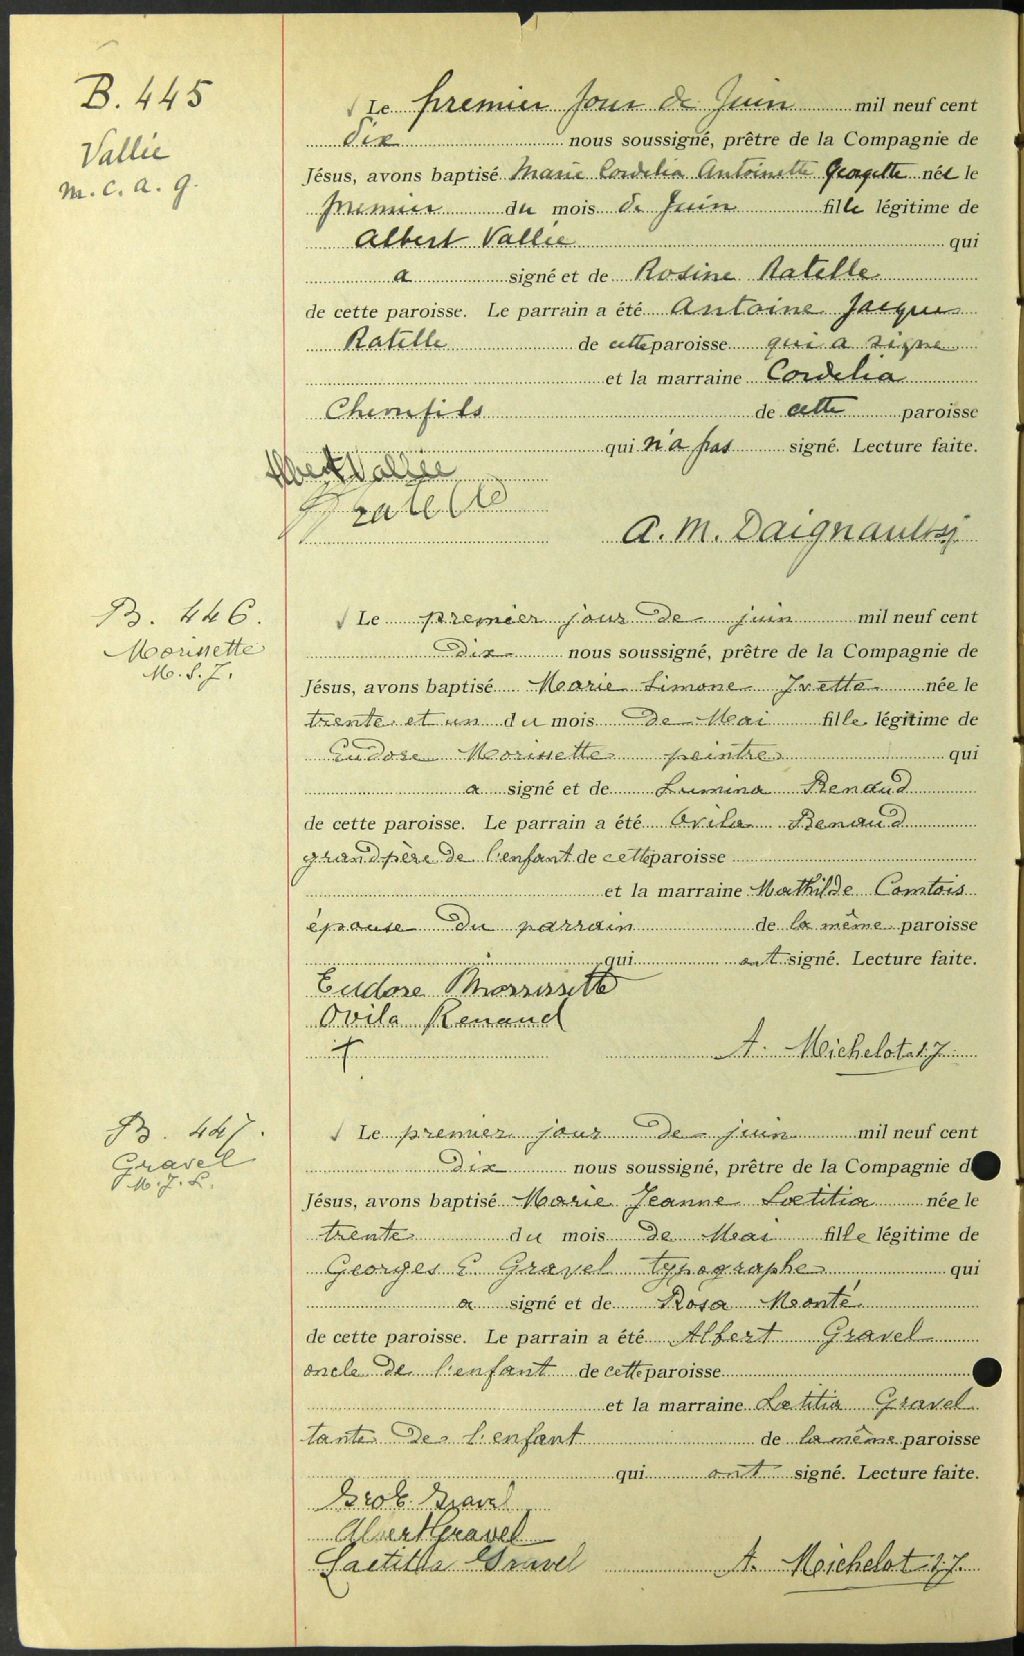 B. 445
Vallée
M. C. A. G.
Le premier jour de Juin mil neuf cent
dix nous soussigné, prêtre de la Compagnie de
Jésus, avons baptisé Marie Cordelia Antoinette Georgette née le
premier du mois de Juin fille légitime de
Albert Vallée qui
a signé et de Rosine Ratelle
de cette paroisse. Le parrain a été Antoine Jacques
Ratelle de cette paroisse qui a signé
et la marraine Cordelia
Chenfils de cette paroisse
qui n'a pas signé. Lecture faite.
Albert Vallée
Ratelle
A. M. Daignault sj
B. 446.
Morissette
M. S. J.
Le premier jour de juin mil neuf cent
dix nous soussigné, prêtre de la Compagnie de
Jésus, avons baptisé Marie Simone Yvette née le
trente et un du mois de Mai fille légitime de
Eudore Morissette peintre qui
a signé et de Lumina Renaud
de cette paroisse. Le parrain a été Ovila Renaud
grandpère de l'enfant de cette paroisse
et la marraine Mathilde Comtois
épouse du parrain de la même paroisse
qui ont signé. Lecture faite.
Eudore Morrissette
Ovila Renaud
+
A. Michelot s.j.
B. 447.
Gravel
M. J. L.
Le premier jour de juin mil neuf cent
dix nous soussigné, prêtre de la Compagnie de
Jésus, avons baptisé Marie Jeanne Lœtitia née le
trente du mois de Mai fille légitime de
Georges E Gravel typographe qui
a signé et de Rosa Monté
de cette paroisse. Le parrain a été Albert Gravel
oncle de l'enfant de cette paroisse
et la marraine Lœtitia Gravel
tante de l'enfant de la même paroisse
qui ont signé. Lecture faite.
Geo E. Gravel
Albert Gravel
Laetitia Gravel
A. Michelot s.j.